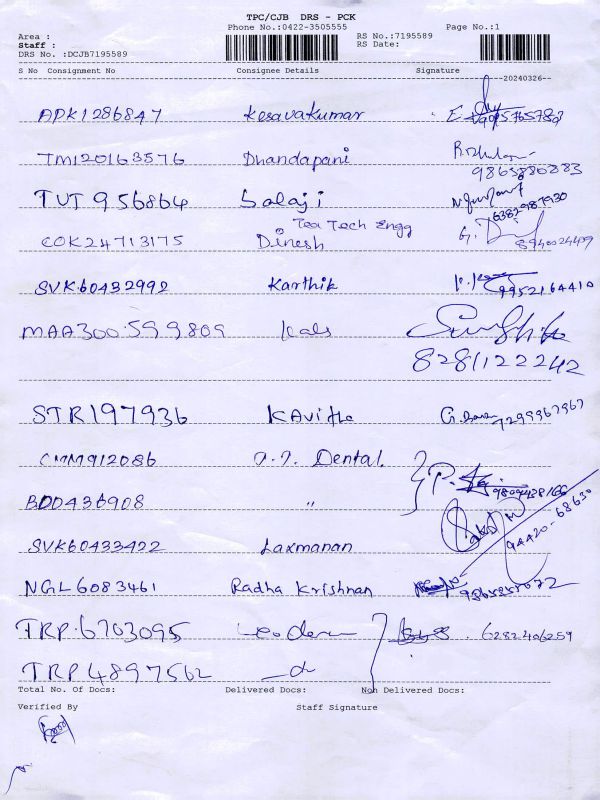 TPC/CJB DRS - PCK
Phone No.:0422-3505555 Page No.:1
Area :
Staff :
DRS No. :DCJB7195589
RS No.:7195589
RS Date:
S No Consignment No Consignee Details Signature
--20240326--
APK1286847 Kesavakumar
TM120163576 Dhandapani
9865880883
TUT 956864 Balaji
6382987930
Tea Tech Engg
COK24713175 Dinesh G. 8940024459
SVK60432992 Karthik 9952164410
MAA300599809 Kals
8281122242
STR197936 Kavitha 7299967967
CMM912086 a.7. Dental.
BDD436908 "
94420-68630
SVK60433422 Laxmanan
NGL6083461 Radha Krishnan
TRP.6703095 6282406259
TRP 4897562
Total No. Of Docs: Delivered Docs: Non Delivered Docs:
Verified By Staff Signature